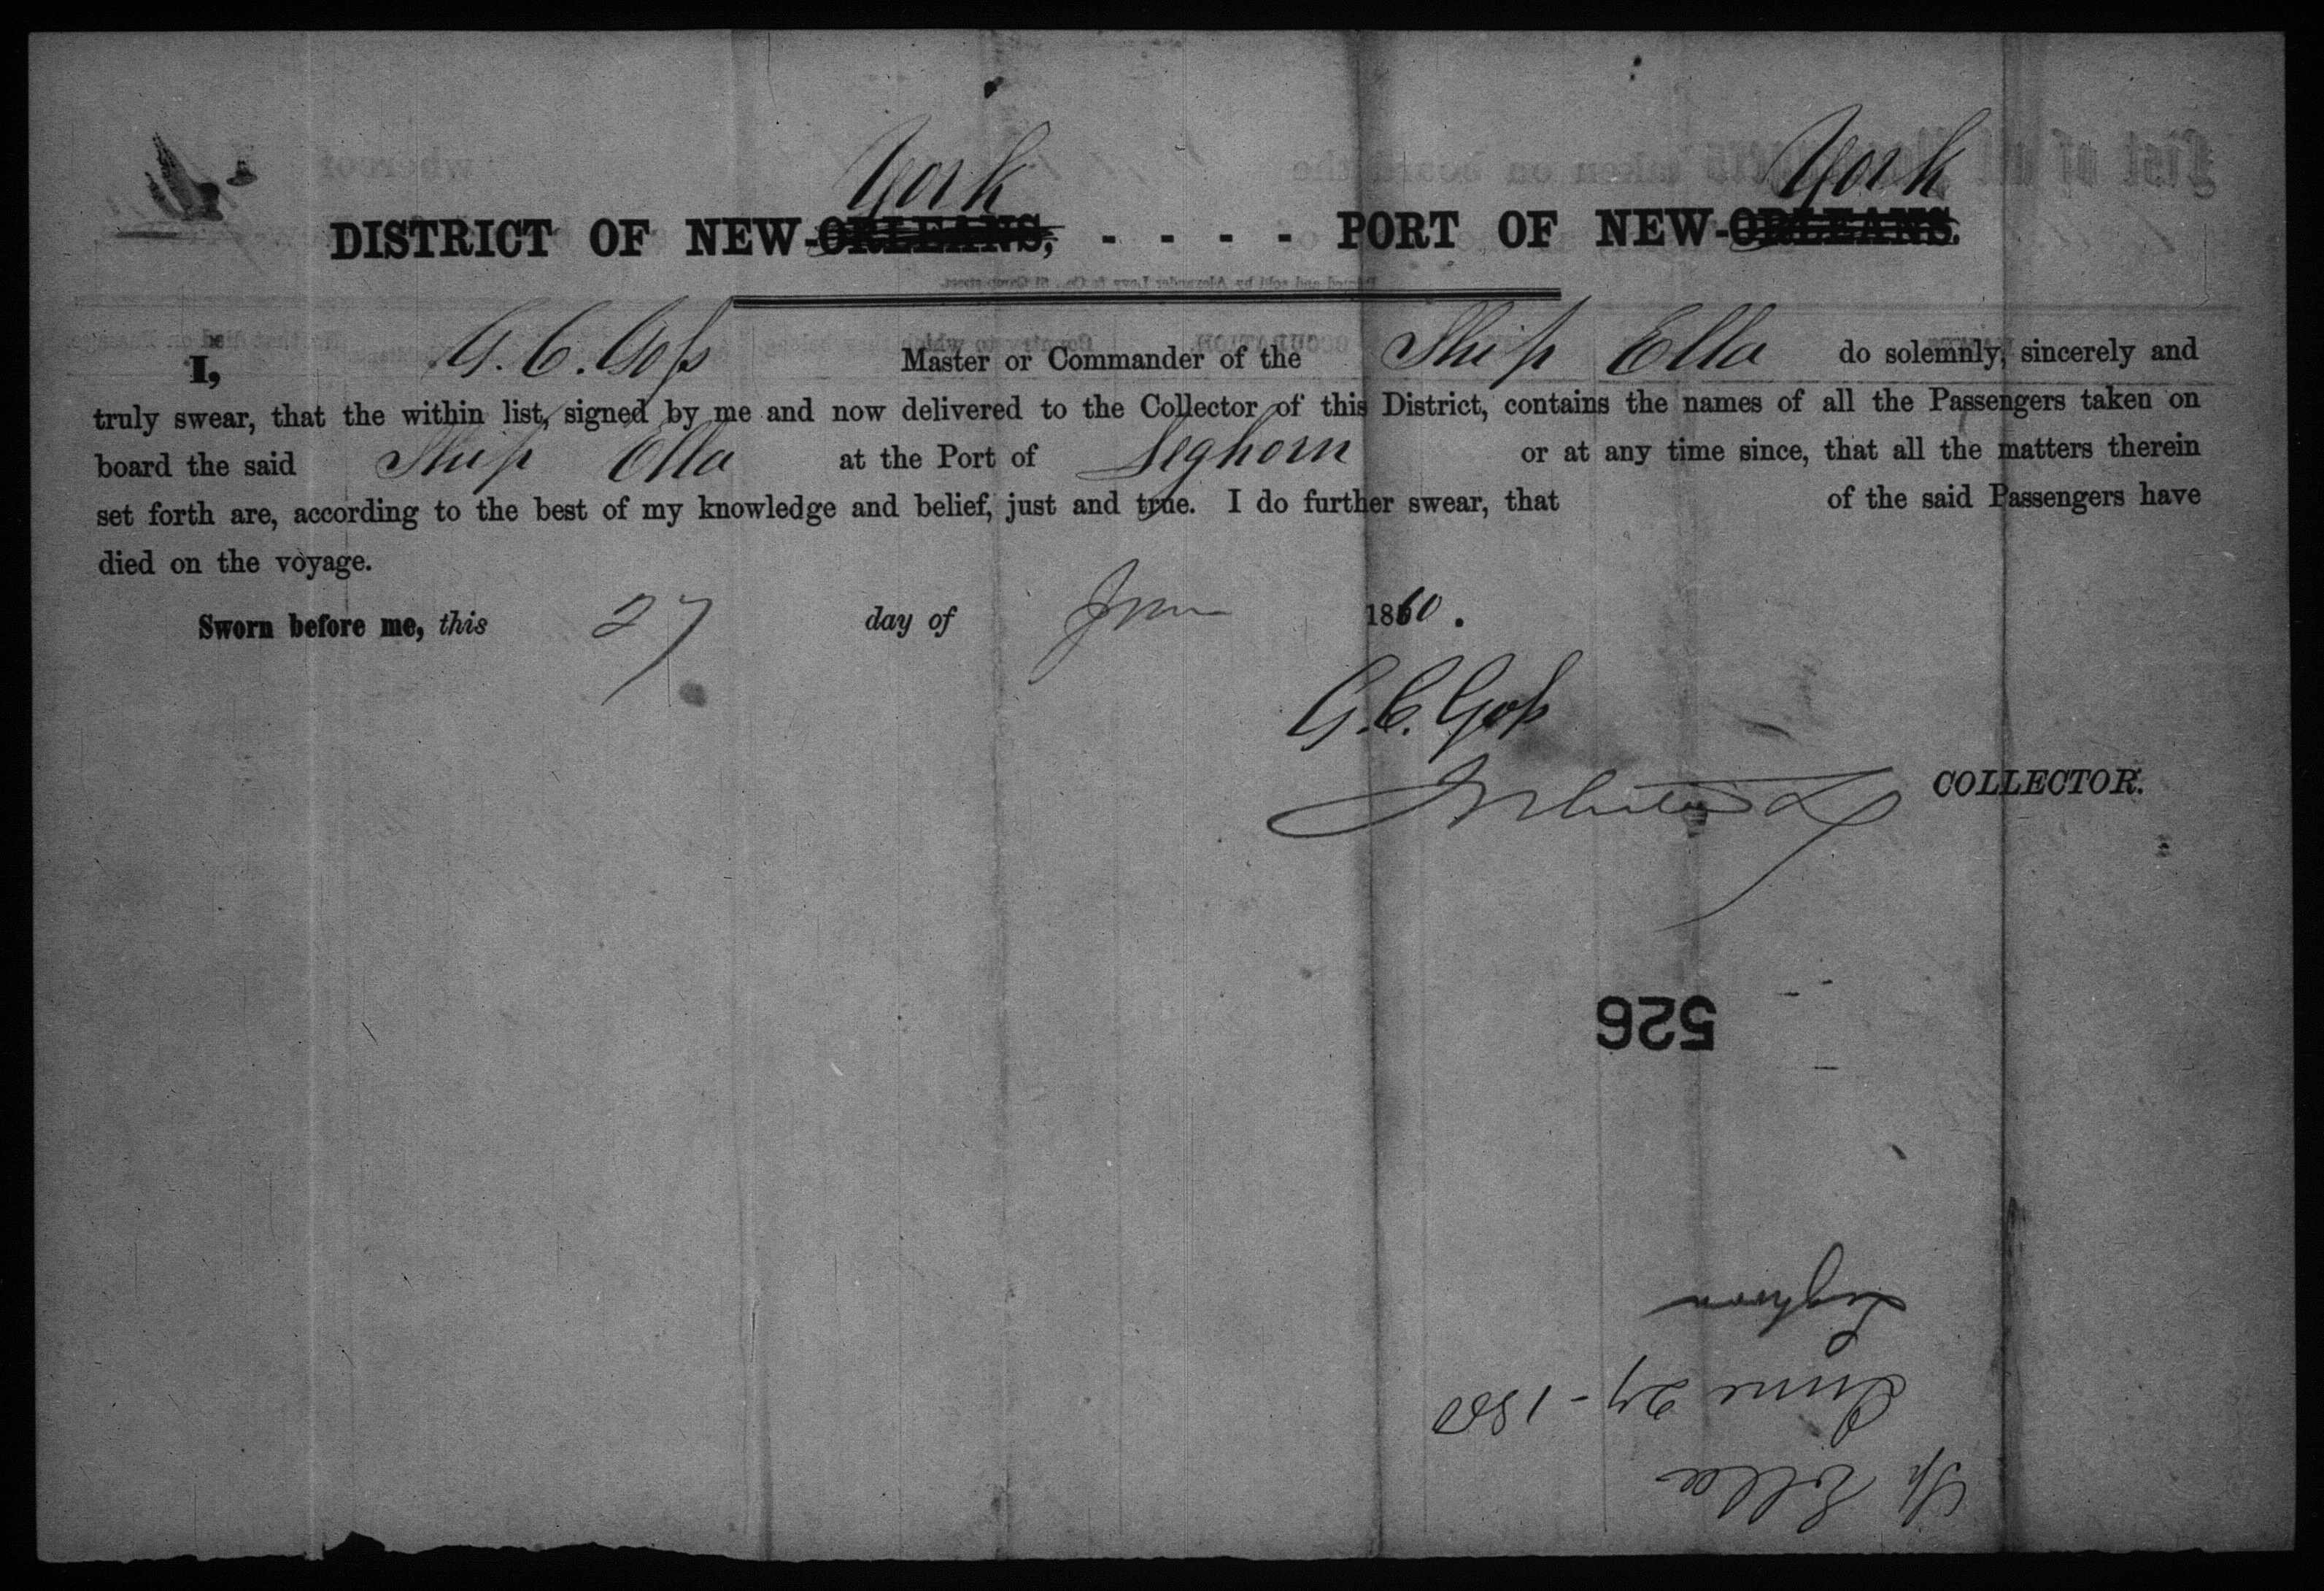 York York
DISTRICT OF NEW-ORLEANS, - - - - PORT OF NEW-ORLEANS.
I, G. C. Goss Master or Commander of the Ship Ella do solemnly, sincerely and
truly swear, that the within list, signed by me and now delivered to the Collector of this District, contains the names of all the Passengers taken on
board the said Ship Ella at the Port of Leghorn or at any time since, that all the matters therein
set forth are, according to the best of my knowledge and belief, just and true. I do further swear, that of the said Passengers have
died on the voyage.
Sworn before me, this 27 day of June 1860.
G. C. Goss
COLLECTOR.
526
Sp Ella
June 27 - 1860
Leghorn